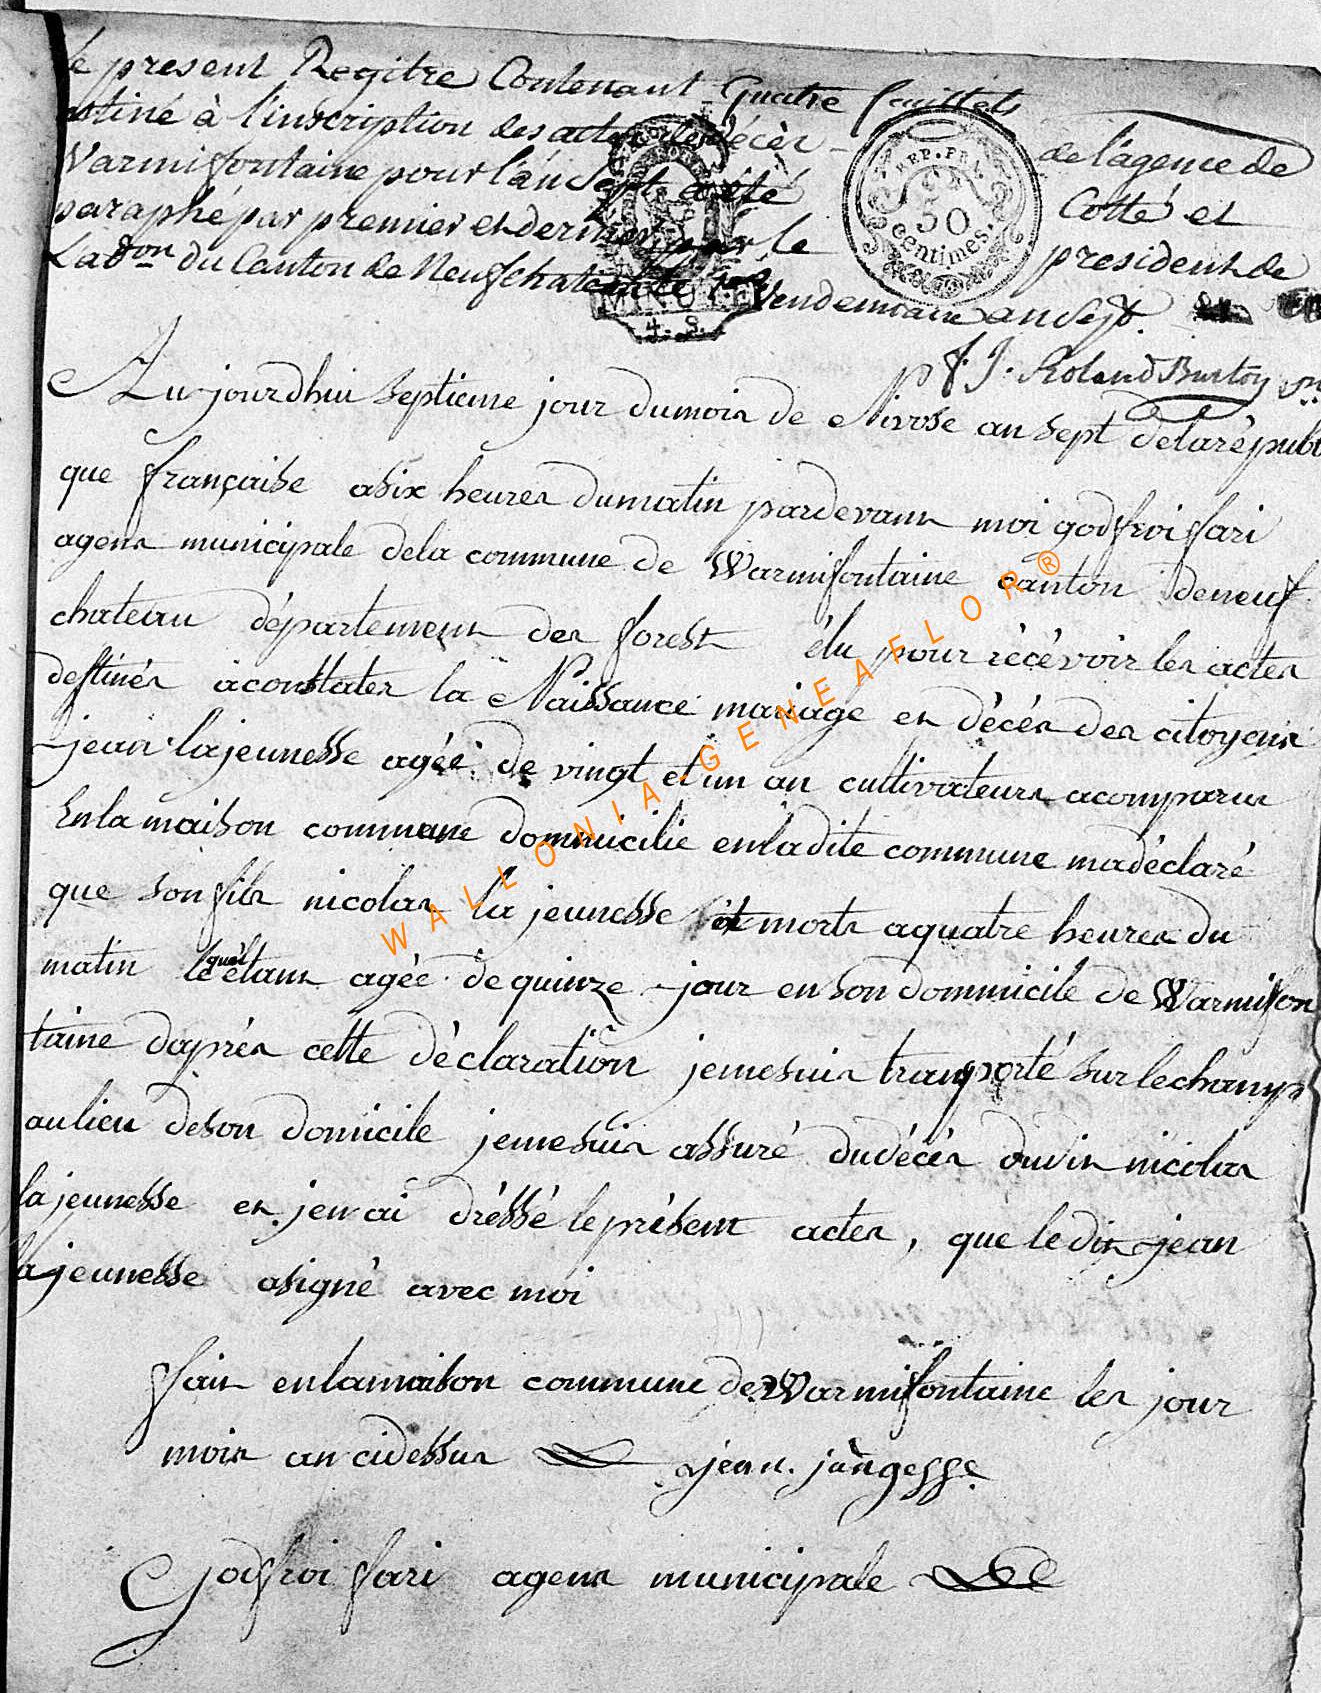 Le present Regitre Contenant Quatre feuillets
estiné à l'inscription des actes de décès de l'agence de
Warmifontaine pour l'an Sept a été Cotté et
paraphé par premier et dernier par le president de
L'ad.on du Canton de Neufchateau le 1er Vendemiaire an Sept.
REP. FRA.
50
centimes.
4. S.
F. J. Roland Burtoy
Aujourdhui septieme jour du mois de Nivose an sept de la républi
que française a six heures du matin pardevant moi godfroi fari
agent municipale de la commune de Warmifontaine canton de neuf
chateau département des forest élu pour récévoir les actes
destinés a constater la Naissance mariage et décés des citoyens
jean lajeunesse agée de vingt et un an cultivateurs a comparus
En la maison commune dommicilie en ladite commune ma déclaré
que son fils nicolas la jeunesse et morts a quatre heures du
matin lequel étant agée de quinze jour en son dommicile de Warmifon
taine daprés cette déclaration je me suis transporté sur le champs
au lieu de son domicile je me suis assuré du décés dudit nicolas
la jeunesse et jen ai dréssé le présent actes, que le dit jean
la jeunesse a signé avec moi
fait en la maison commune de Warmifontaine les jour
mois an cidessus jean. jùngesse
Godfroi fari agent municipale
WALLONIA-GENEAFLOR®